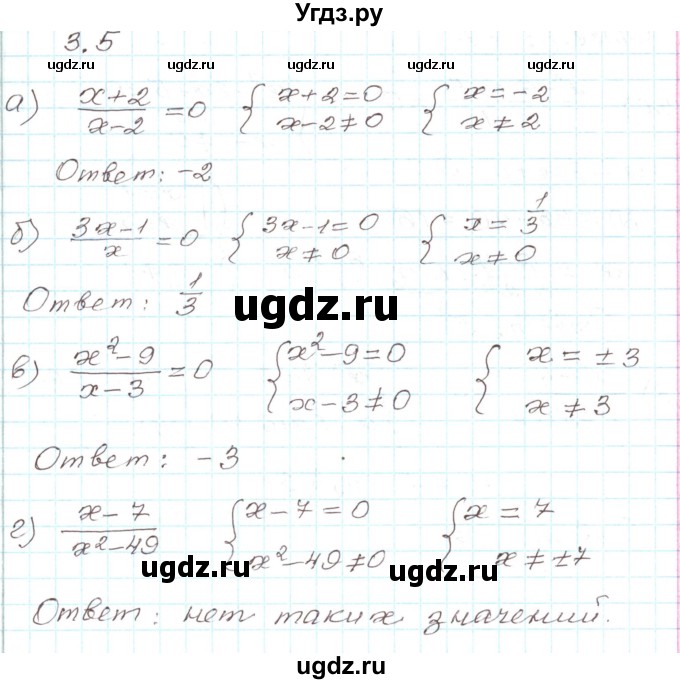 Угдз.ру
3.5
ugdz.ru ugdz.ru ugdz.ru ugdz.ru
а) (x+2)/(x-2) = 0 { x+2=0 x-2≠0 { x=-2 x≠2
Ответ: -2
ugdz.ru ugdz.ru ugdz.ru ugdz.ru
б) (3x-1)/x = 0 { 3x-1=0 x≠0 { x=1/3 x≠0
Ответ: 1/3
ugdz.ru
в) (x²-9)/(x-3) = 0 { x²-9=0 x-3≠0 { x=±3 x≠3
Ответ: -3
г) (x-7)/(x²-49) { x-7=0 x²-49≠0 { x=7 x≠±7
ugdz.ru ugdz.ru ugdz.ru
Ответ: нет таких значений.
ugdz.ru